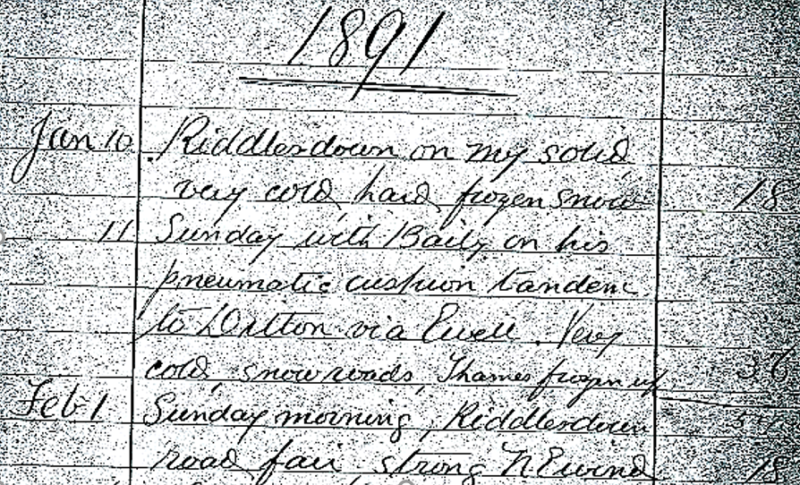 1891
Jan 10 Riddlesdown on my solid,
very cold, hard frozen snow 18
11 Sunday with Baily on his
pneumatic cushion tandem
to Ditton via Ewell. Very
cold, snow roads, Thames frozen up 36
Feb 1 Sunday morning, Riddlesdown
road fair, strong N E wind 18